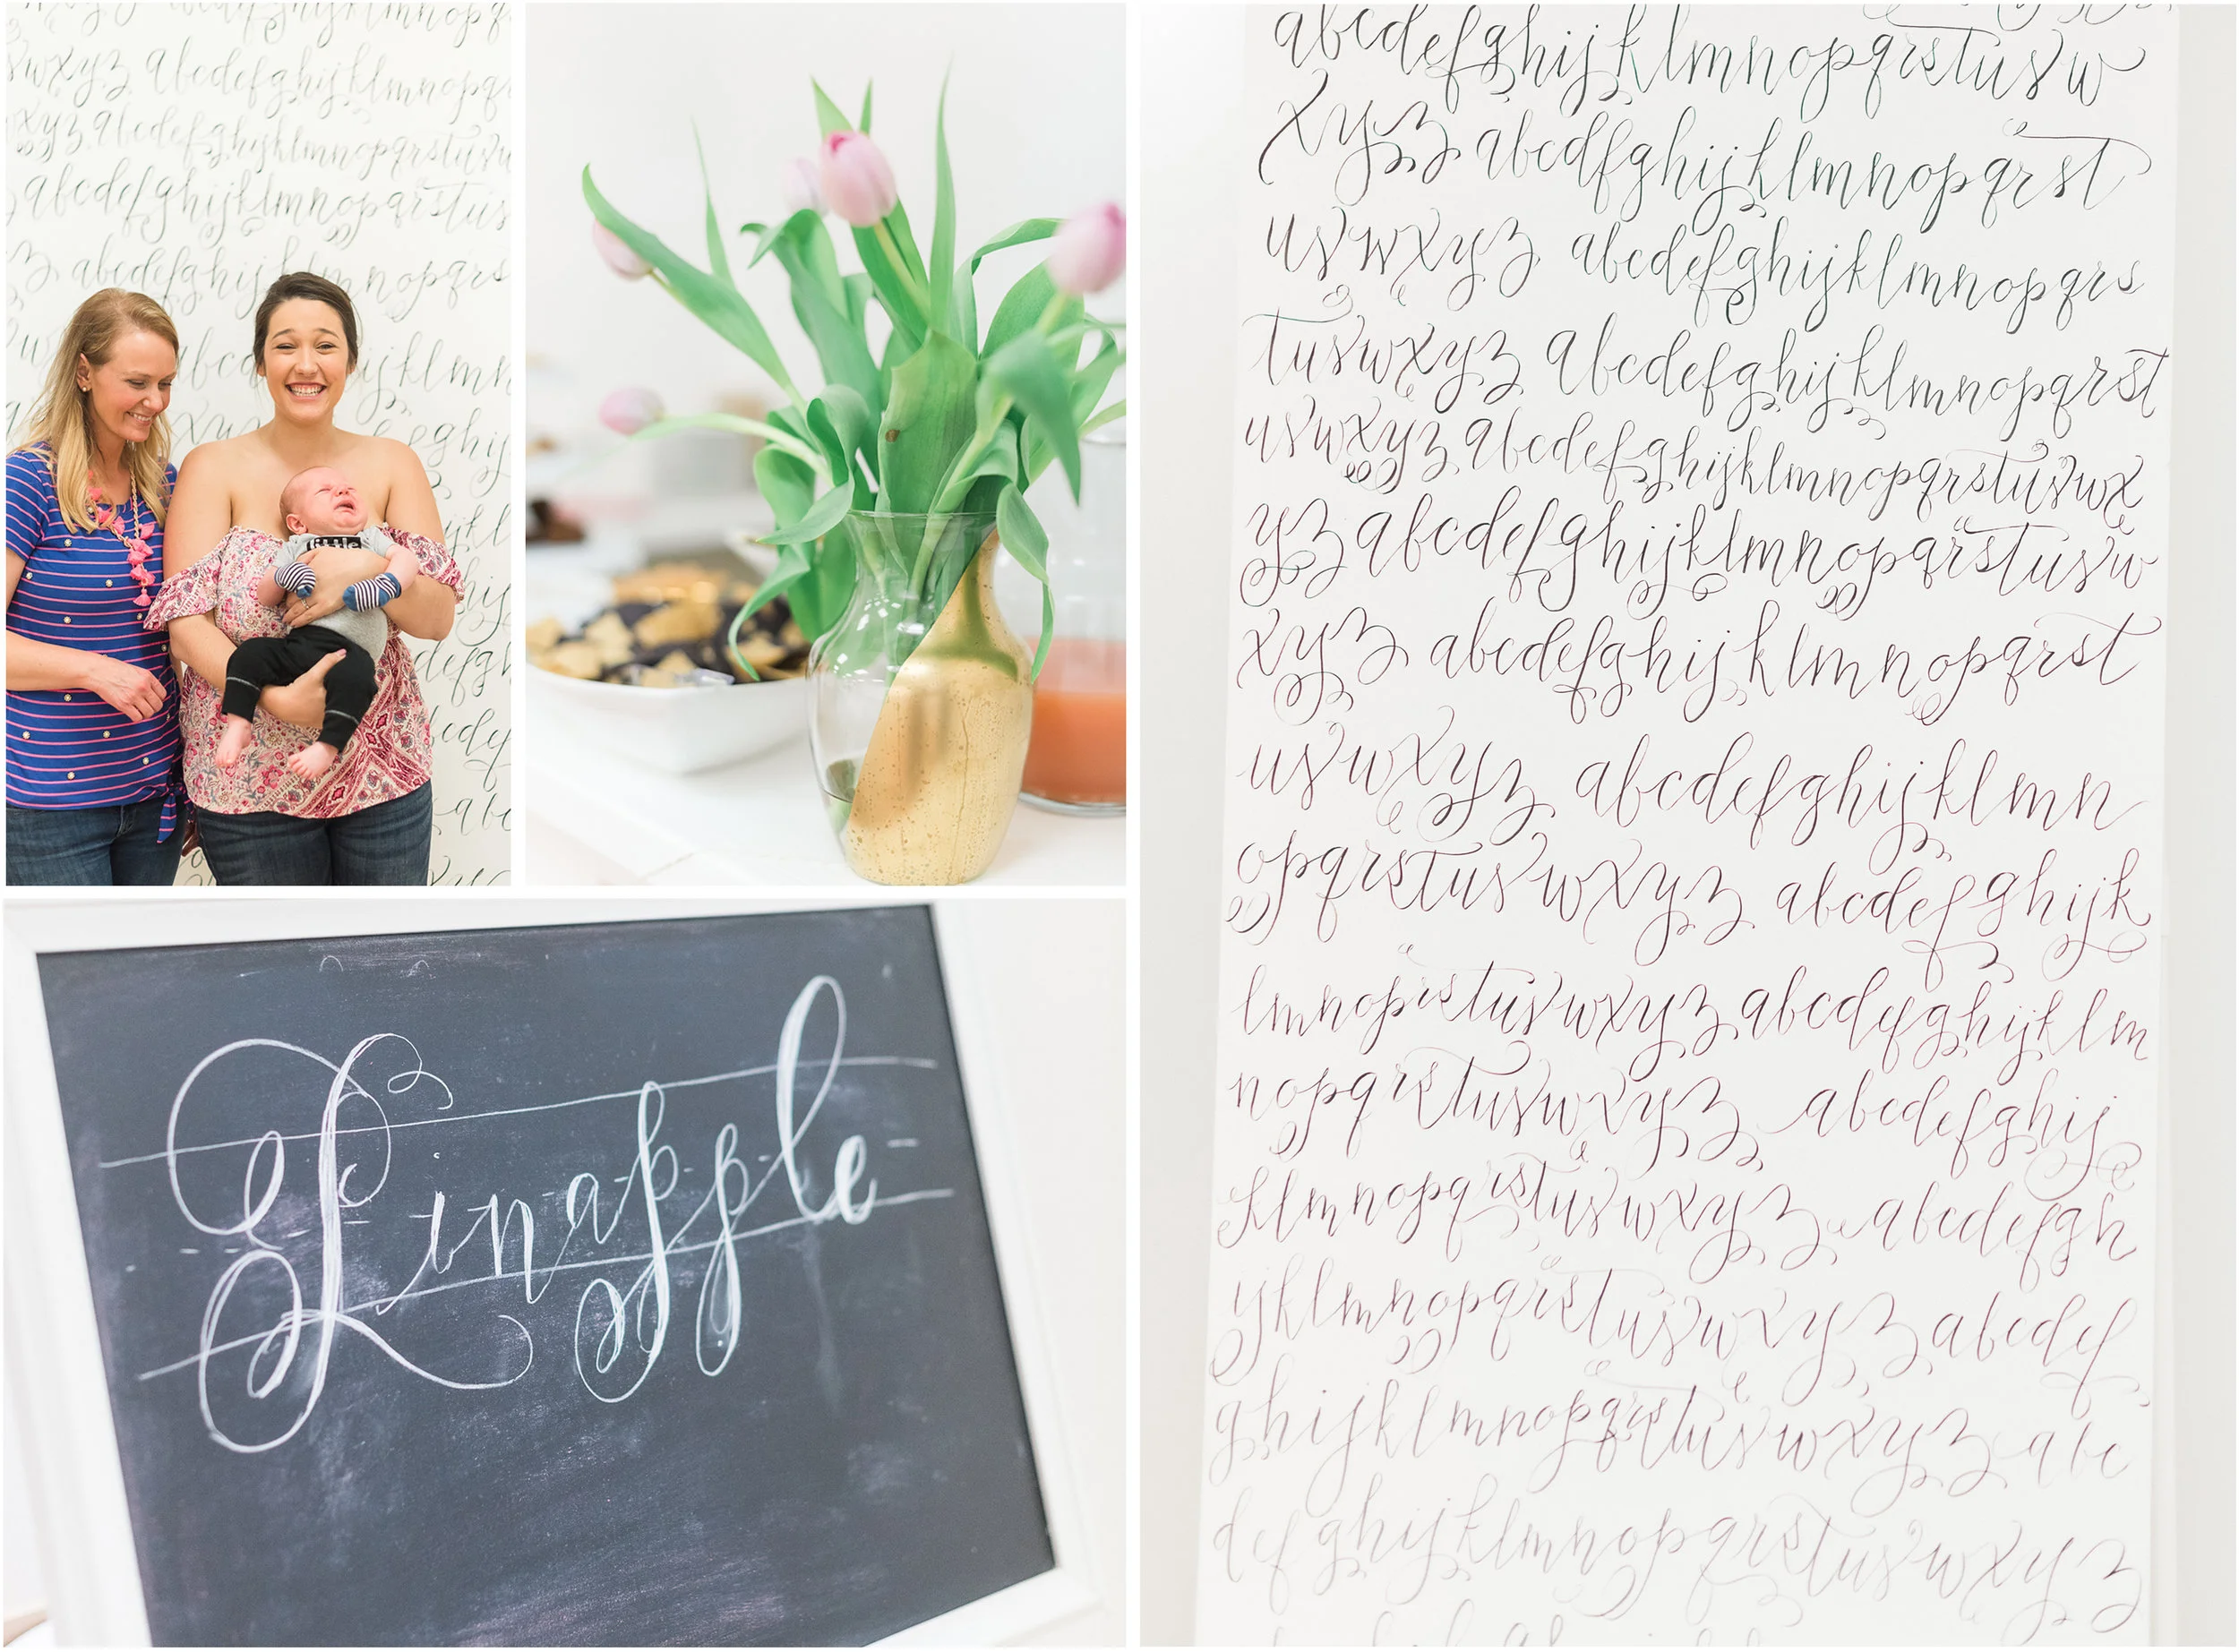 wxyz abcdefghijklmnopq
xyz abcdefghijklmnopqrstuvw
abcdefghijklmnopqrstuv
z abcdefghijklmnopqrs
little
Linapple
abcdefghijklmnopqrstuvw
xyz abcdfghijklmnopqrst
uvwxyz abcdefghijklmnopqrs
tuvwxyz abcdefghijklmnopqrst
uvwxyz abcdefghijklmnopqrstuvwx
yz abcdefghijklmnopqrstuvw
xyz abcdefghijklmnopqrst
uvwxyz abcdefghijklmn
opqrstuvwxyz abcdefghijk
lmnopqrstuvwxyz abcdefghijklm
nopqrstuvwxyz abcdefghij
klmnopqrstuvwxyz abcdefgh
ijklmnopqrstuvwxyz abcdef
ghijklmnopqrstuvwxyz abc
defghijklmnopqrstuvwxyz